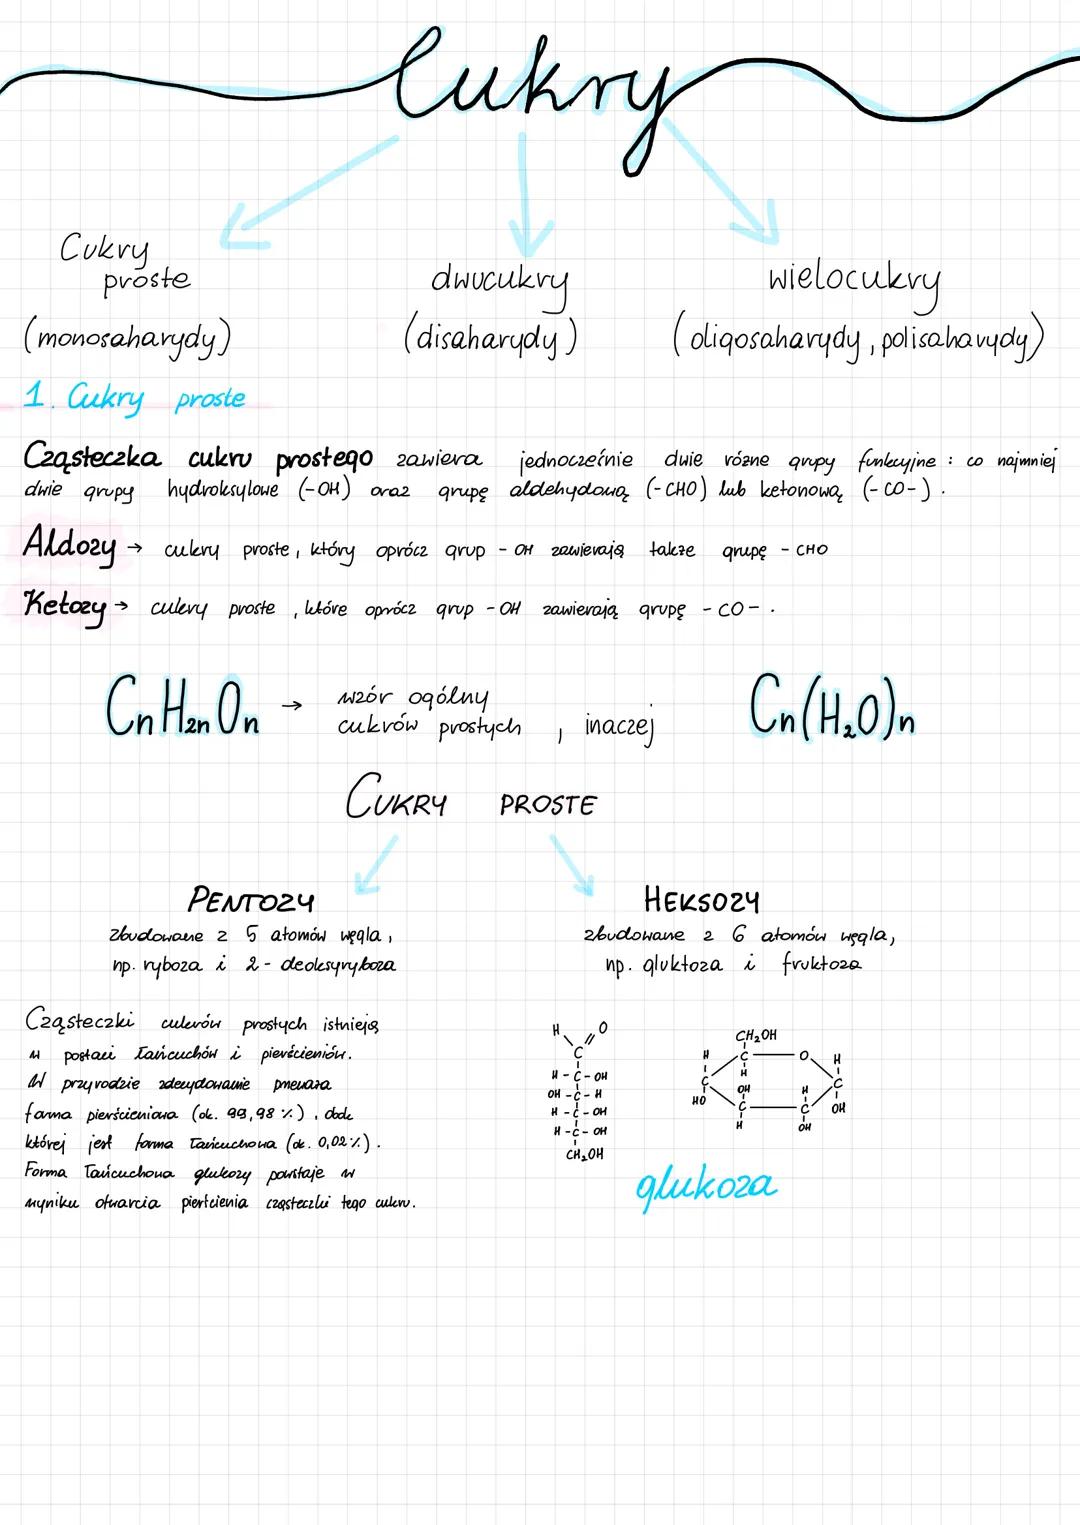 Cukry
Cukry proste
dwucukry
wielocukry
(monosaharydy)
(disaharydy)
(oligosaharydy, polisaharydy)
1. Cukry proste
Cząsteczka cukru prostego zawiera jednocześnie dwie różne grupy funkcyjne : co najmniej
dwie grupy hydroksylowe (-OH) oraz grupę aldehydową (-CHO) lub ketonową (-CO-).
Aldozy → cukry proste, który oprócz grup -OH zawierają także grupę -CHO
Ketozy → cukry proste, które oprócz grup -OH zawierają grupę -CO-.
CnH2nOn → wzór ogólny
cukrów prostych, inaczej Cn(H₂O)n
CUKRY PROSTE
PENTOZY
zbudowane z 5 atomów węgla,
np. ryboza i 2-deoksyryboza
HEKSOZY
zbudowane z 6 atomów węgla,
np. gluktoza i fruktoza
Cząsteczki cukrów prostych istnieją
w postaci łańcuchów i pierścieniów.
W przyrodzie zdecydowanie przeważa
forma pierścieniowa (ok. 99,98%), obok
której jest forma łańcuchowa (ok. 0,02%).
Forma łańcuchowa glukozy powstaje w
wyniku otwarcia pierścienia cząsteczki tego cukru.
H O
C
H-C-OH
OH-C-H
H-C-OH
H-C-OH
CH₂OH
CH₂OH
H C O H
C H C
HO OH H OH
C C
H OH
glukoza